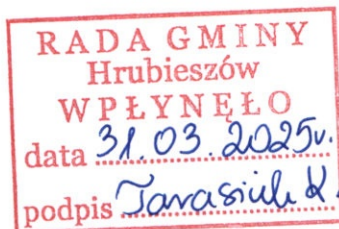 RADA GMINY
Hrubieszów
WPŁYNĘŁO
data 31.03.2025r.
podpis Tarasiuk K.